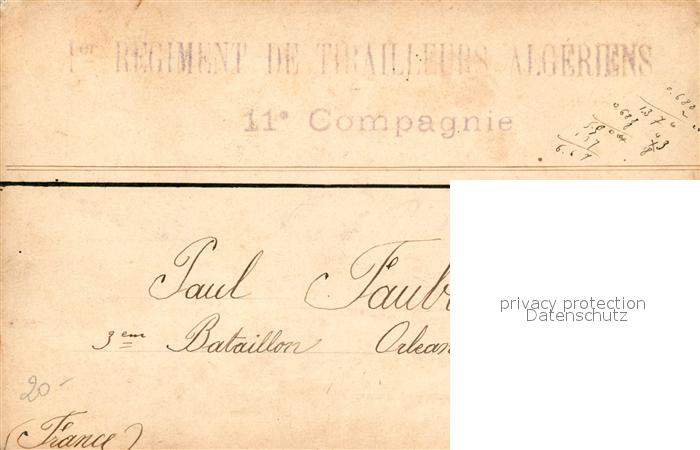 1er RÉGIMENT DE TIRAILLEURS ALGÉRIENS
11e Compagnie
0.680
Paul Faub
3em Bataillon Orlean
20-
(France)
privacy protection
Datenschutz